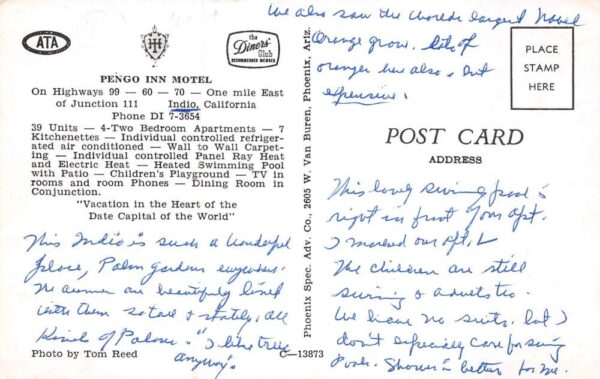 We also saw the worlds largest Navel
Orange grow. Lots of
oranges here also, but
expensive.
ATA
the
Diners'
Club
RECOMMENDED MEMBER
PLACE
STAMP
HERE
PENGO INN MOTEL
On Highways 99 — 60 — 70 — One mile East
of Junction 111 Indio, California
Phone DI 7-3654
39 Units — 4-Two Bedroom Apartments — 7
Kitchenettes — Individual controlled refriger-
ated air conditioned — Wall to Wall Carpet-
ing — Individual controlled Panel Ray Heat
and Electric Heat — Heated Swimming Pool
with Patio — Children's Playground — TV in
rooms and room Phones — Dining Room in
Conjunction.
"Vacation in the Heart of the
Date Capital of the World"
This Indio is such a wonderful
place, Palm gardens everywhere.
The are beautifully lined
with them so tall & stately, all
Kinds of Palms. "I like trees
anyway".
Photo by Tom Reed
C—13873
Phoenix Spec. Adv. Co., 2605 W. Van Buren, Phoenix, Ariz.
POST CARD
ADDRESS
This lovely swiming pool is
right in front of our apt.
I marked our apt.
The children are still
swiming & adults too.
We have no suits, but I
don't especially care for swim
Pools. Shower is better for me.